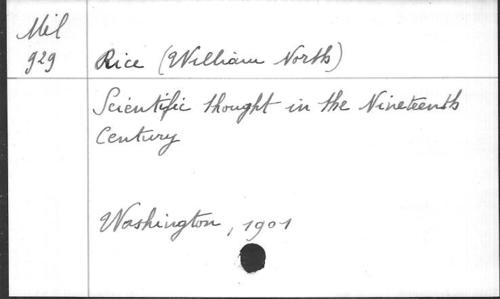 Mil
929
Rice (William North)
Scientific thought in the Nineteenth
Century
Washington, 1901